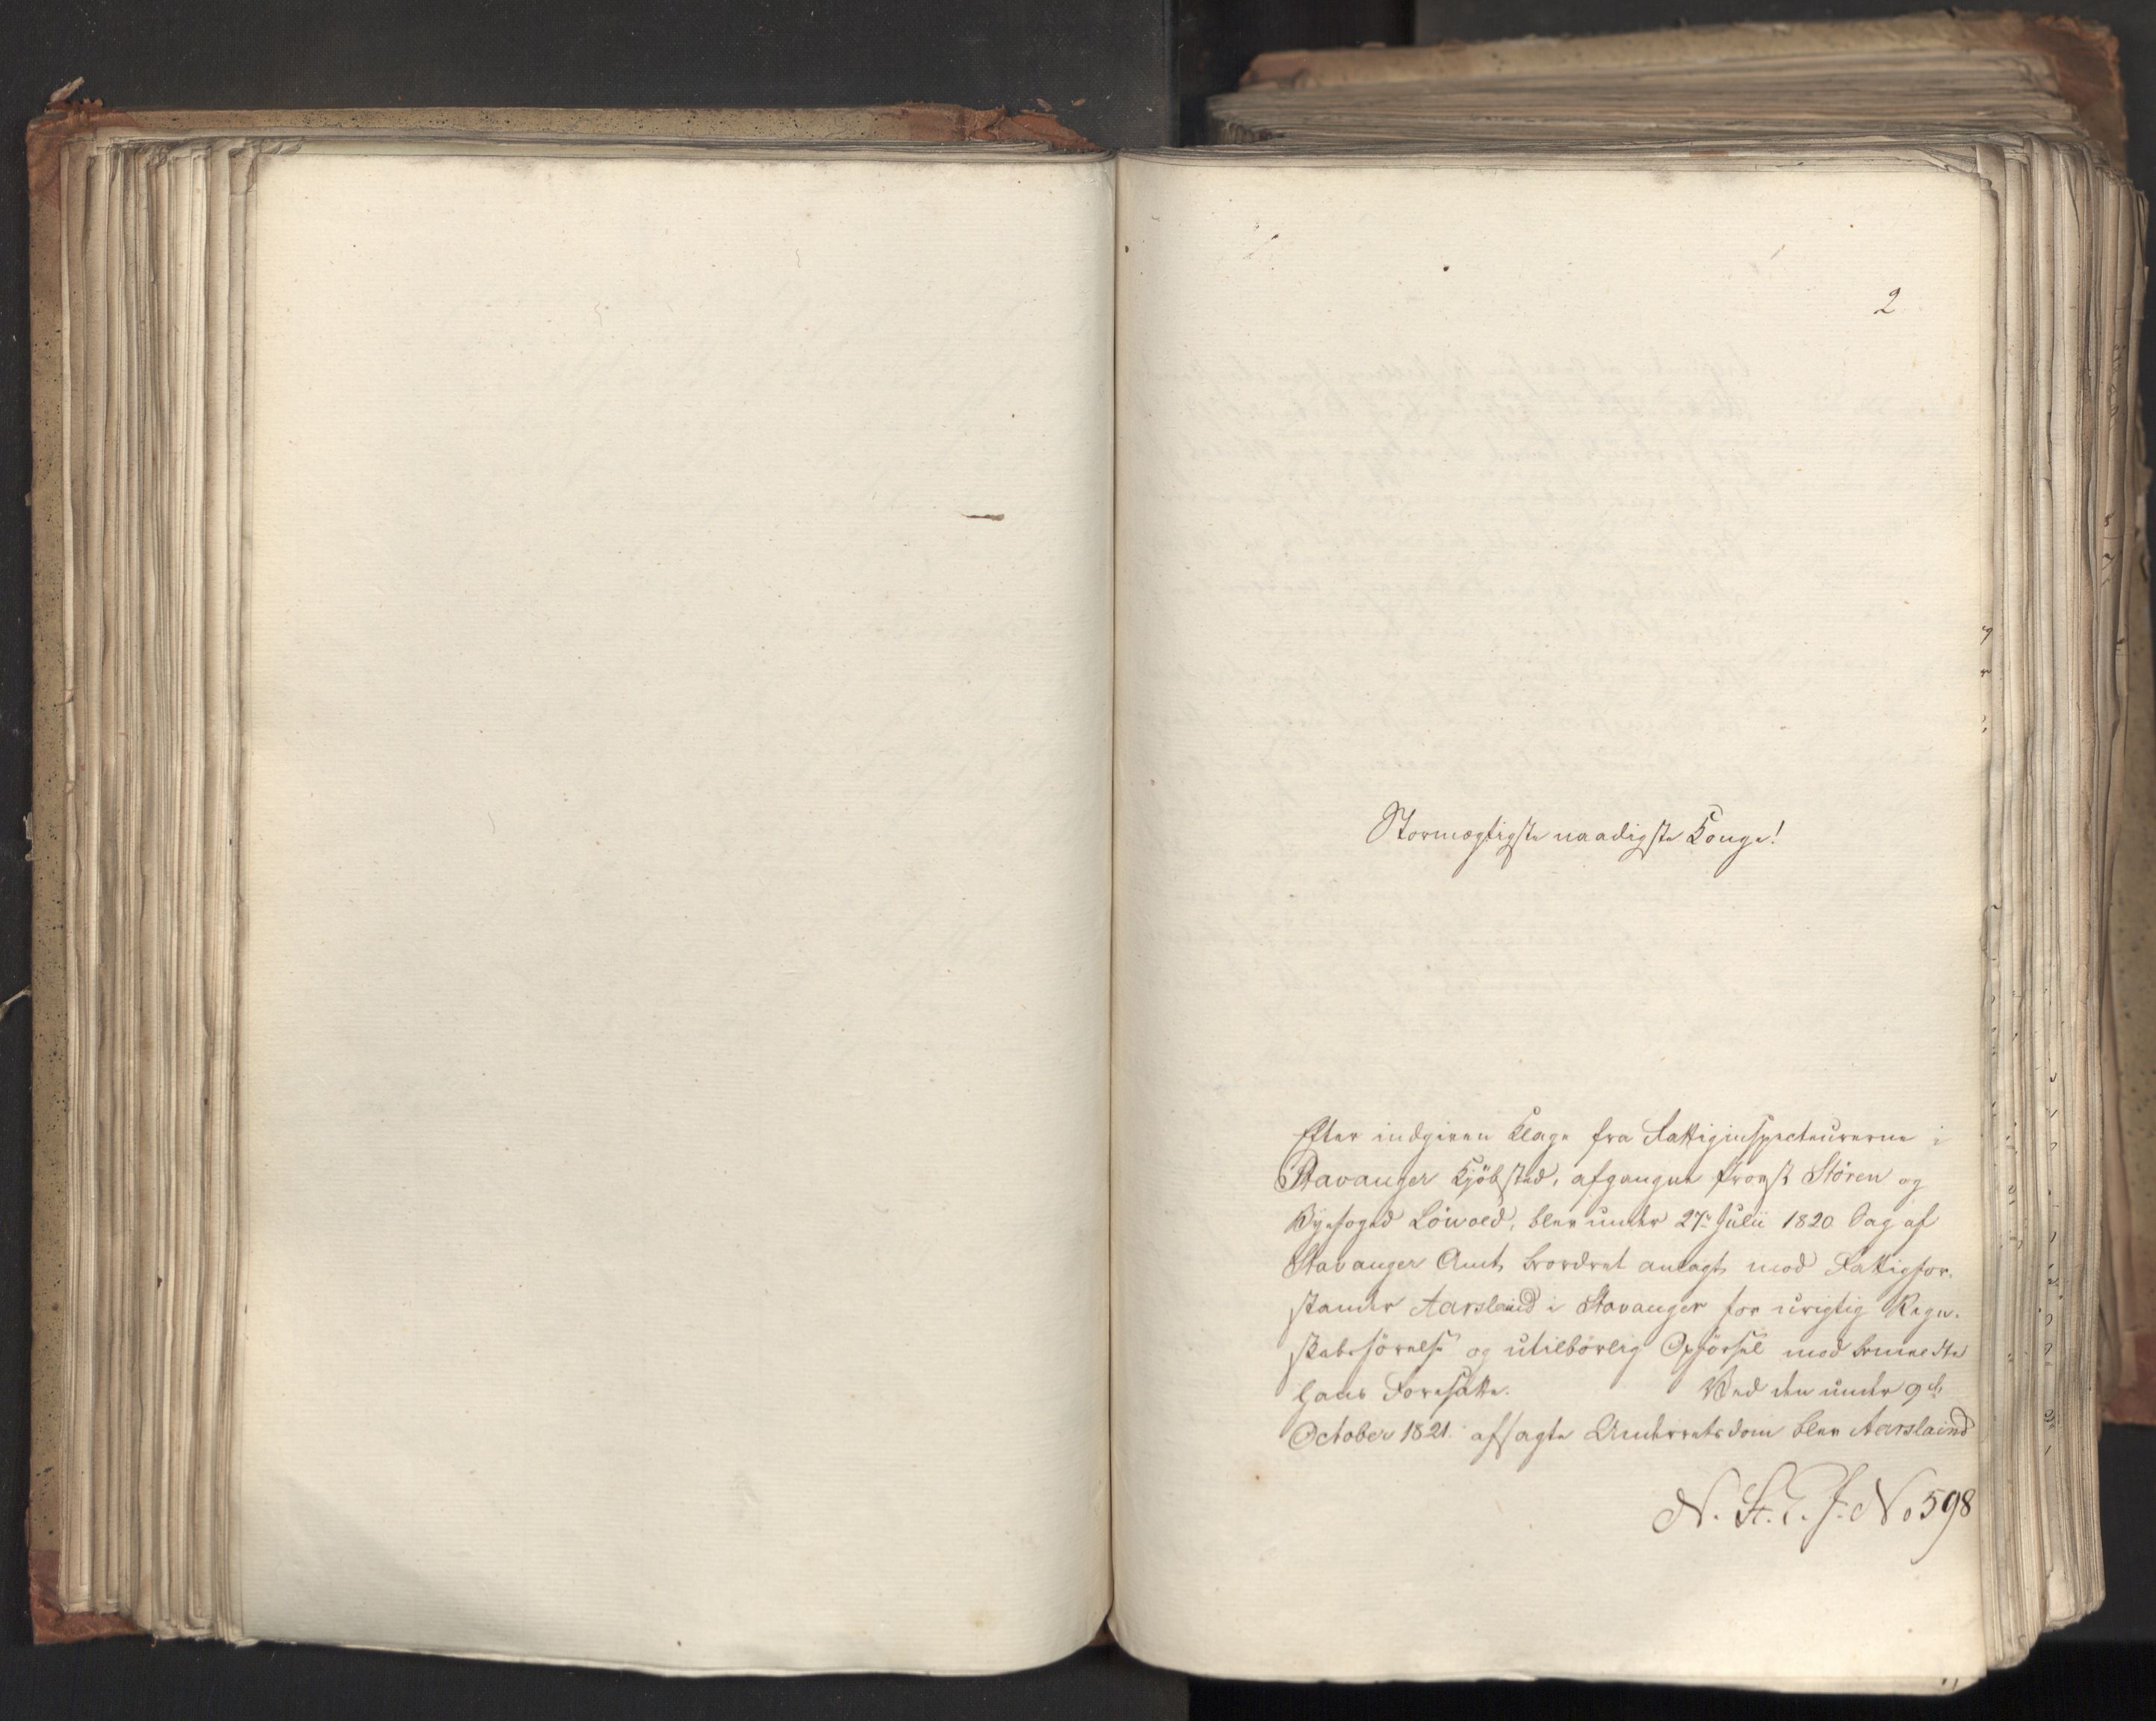 2
Stormægtigste naadigste Konge!
Efter indgiven Klage fra Fattiginspecteurerne i
Stavanger Kjöbsted, afgangne Provst Stören og
Byefoged Löwold, blev under 27de Julii 1820 Sag af
Stavanger Amt beordret anlagt mod Fattigfor-
stander Aarsland i Stavanger for urigtig Regn-
skabsförelse og utilbörlig Opförsel mod bemeldte
hans Foresatte. Ved den under 9de
October 1821 afsagte Underretsdom blev Aarsland
No 598